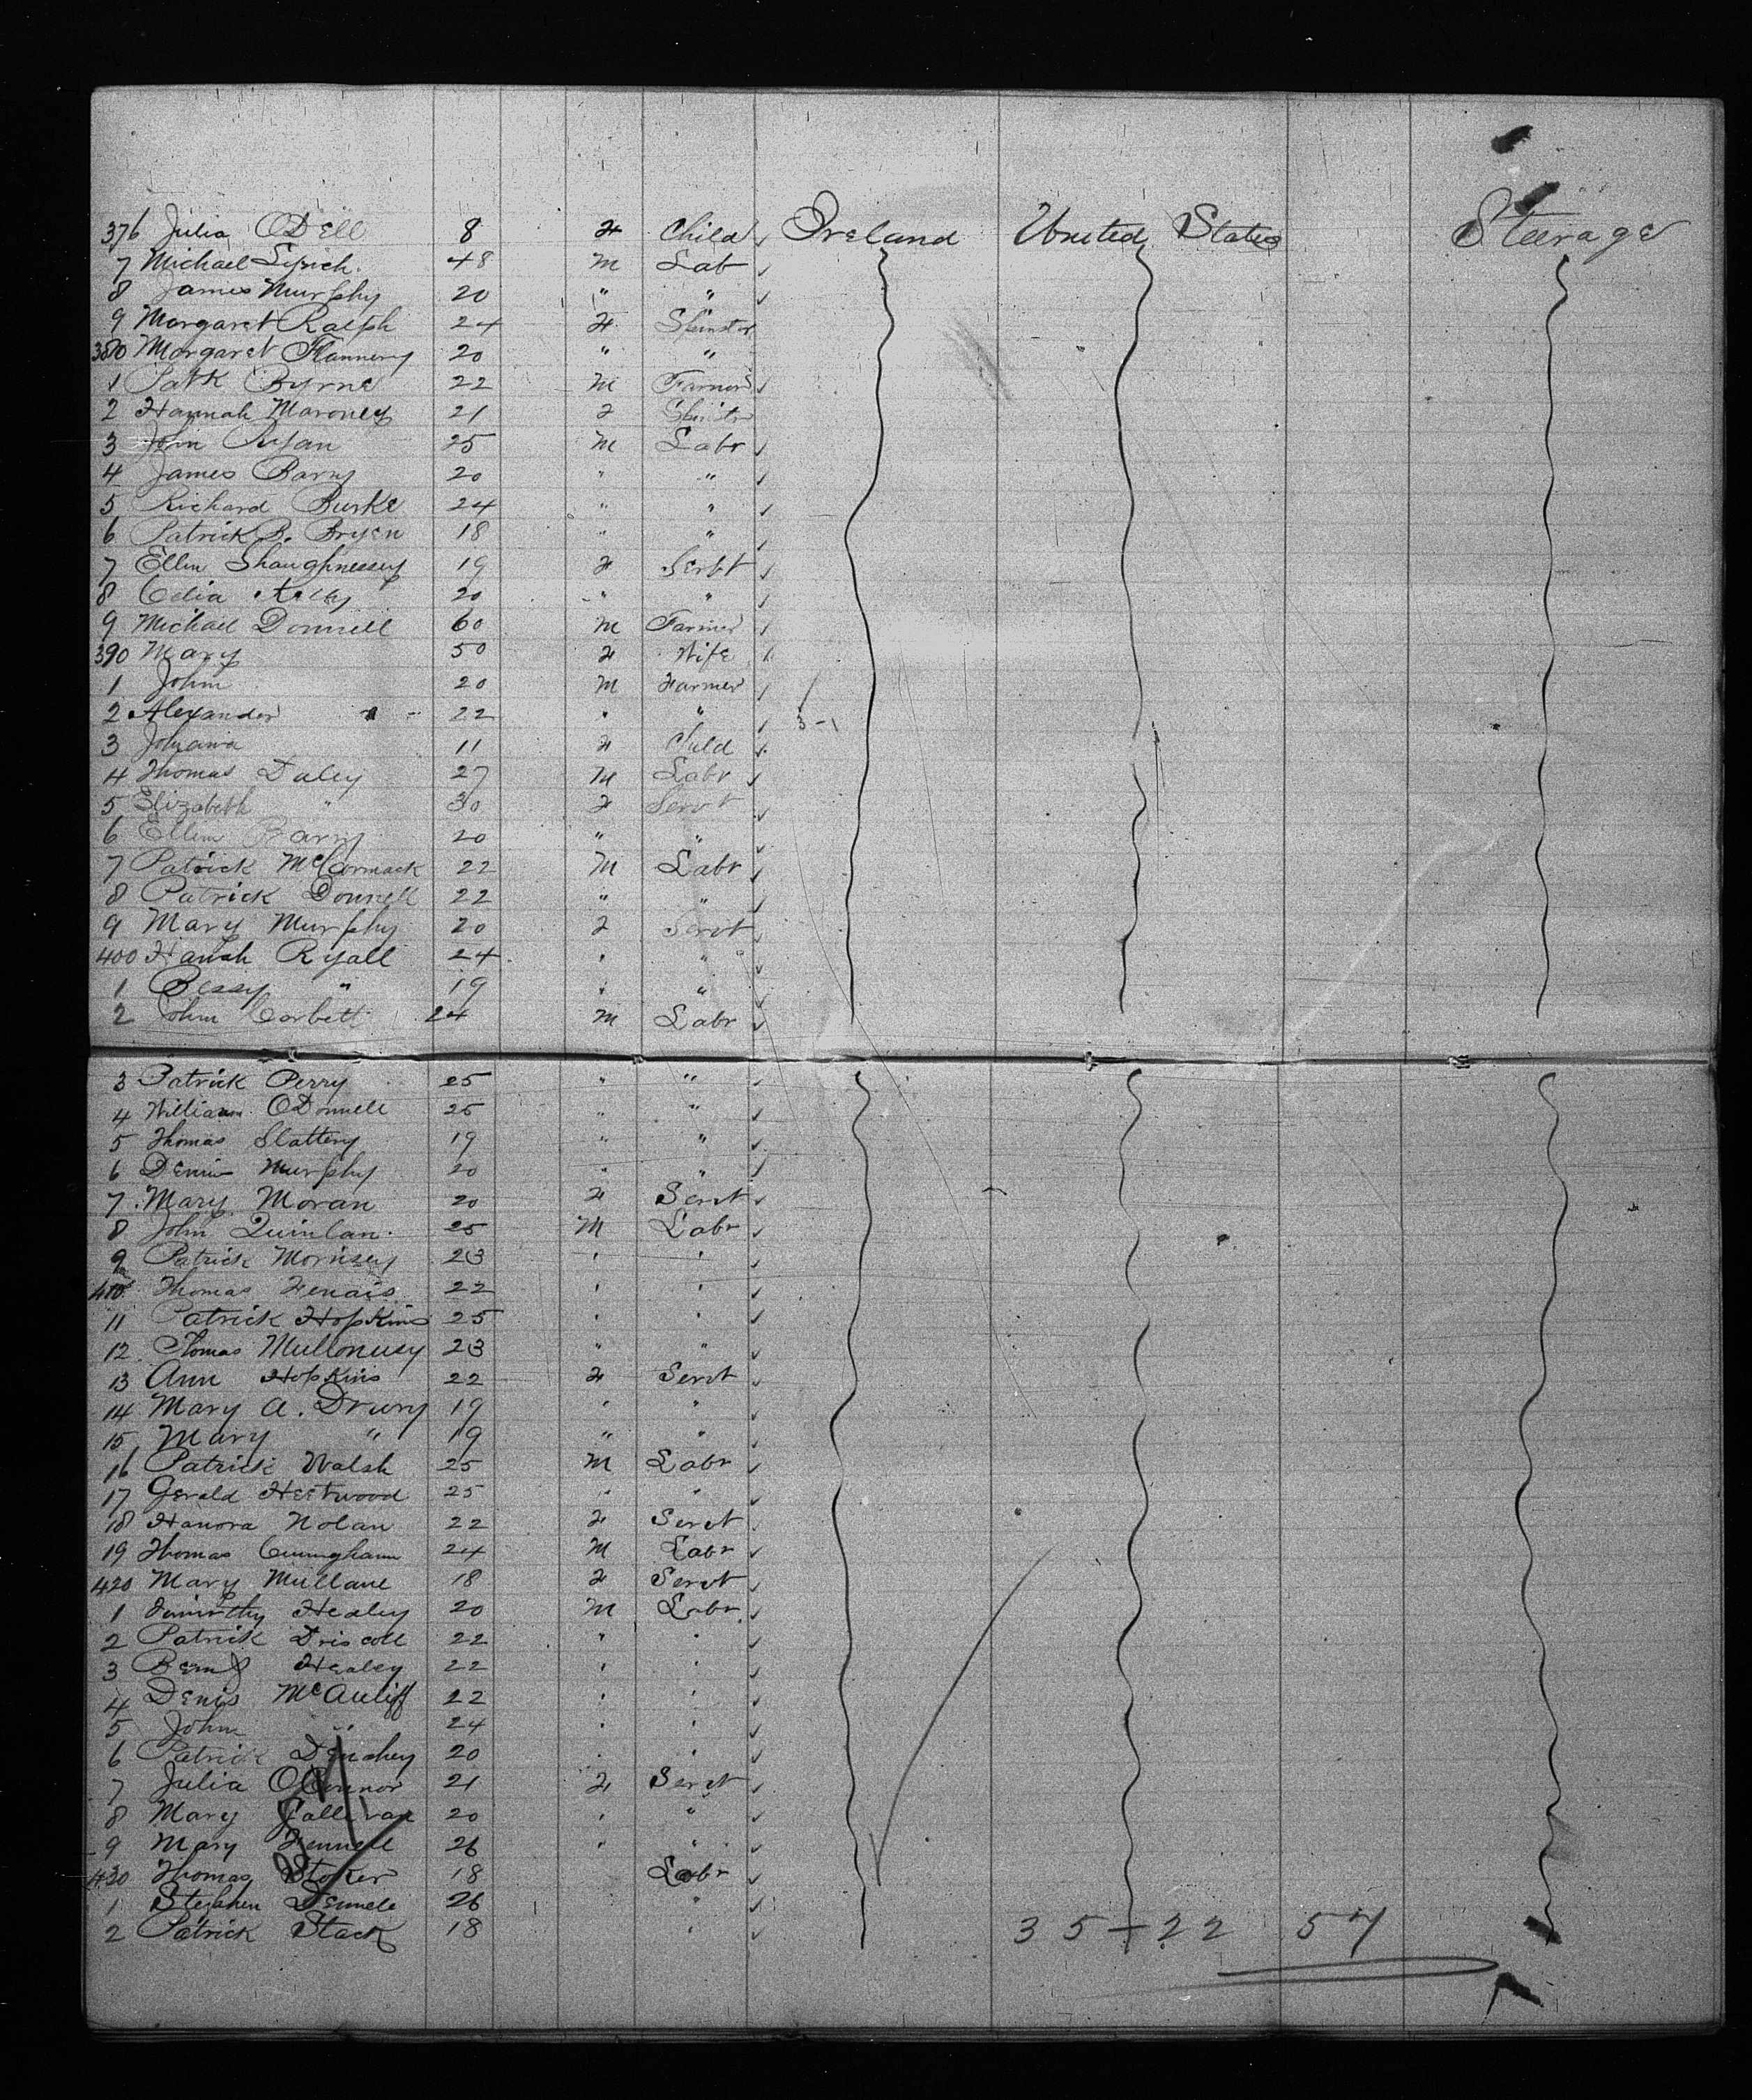 376 Julia ODell 8 F Child Ireland United States Steerage
7 Michael Lynch 48 M Lab
8 James Murphy 20 " "
9 Margaret Ralph 24 F Spinster
380 Margaret Flannery 20 " "
1 Patk Byrne 22 M Farmer
2 Hannah Maroney 21 F Spinster
3 John Ryan 25 M Labr
4 James Barry 20 " "
5 Richard Burke 24 " "
6 Patrick B. Bryen 18 " "
7 Ellen Shaughnessy 19 F Servt
8 Celia 20 " "
9 Michael Donnell 60 M Farmer
390 Mary 50 F Wife
1 John 20 M Farmer
2 Alexander " 22 " " 3-1
3 Johana 11 F Child
4 Thomas Daley 27 M Labr
5 Elizabeth " 30 F Servt
6 Ellen Barry 20 " "
7 Patrick McCormack 22 M Labr
8 Patrick Donnell 22 " "
9 Mary Murphy 20 F Servt
400 Hanah Ryall 24 " "
1 Bessy " 19 " "
2 John Corbett 24 M Labr
3 Patrick Perry 25 " "
4 William ODonnell 25 " "
5 Thomas Slattery 19 " "
6 Denis Murphy 20 " "
7 Mary Moran 20 F Servt
8 John Quinlan 25 M Labr
9 Patrick Morrisey 23 " "
410 Thomas 22 " "
11 Patrick Hopkins 25 " "
12 Thomas 23 " "
13 Ann Hopkins 22 F Servt
14 Mary A. Drury 19 " "
15 Mary " 19 " "
16 Patrick Walsh 25 M Labr
17 Gerald 25 " "
18 Hanora Nolan 22 F Servt
19 Thomas Cuningham 24 M Labr
420 Mary Mullane 18 F Servt
1 Timothy Healey 20 M Labr
2 Patrick Driscoll 22 " "
3 Healey 22 " "
4 Denis McAuliff 22 " "
5 John " 24 " "
6 Patrick 20 " "
7 Julia OConnor 21 F Servt
8 Mary 20 " "
9 Mary 26 " "
430 Thomas Stoker 18 Labr
1 Stephen 26 "
2 Patrick Stack 18 "
35+22 57